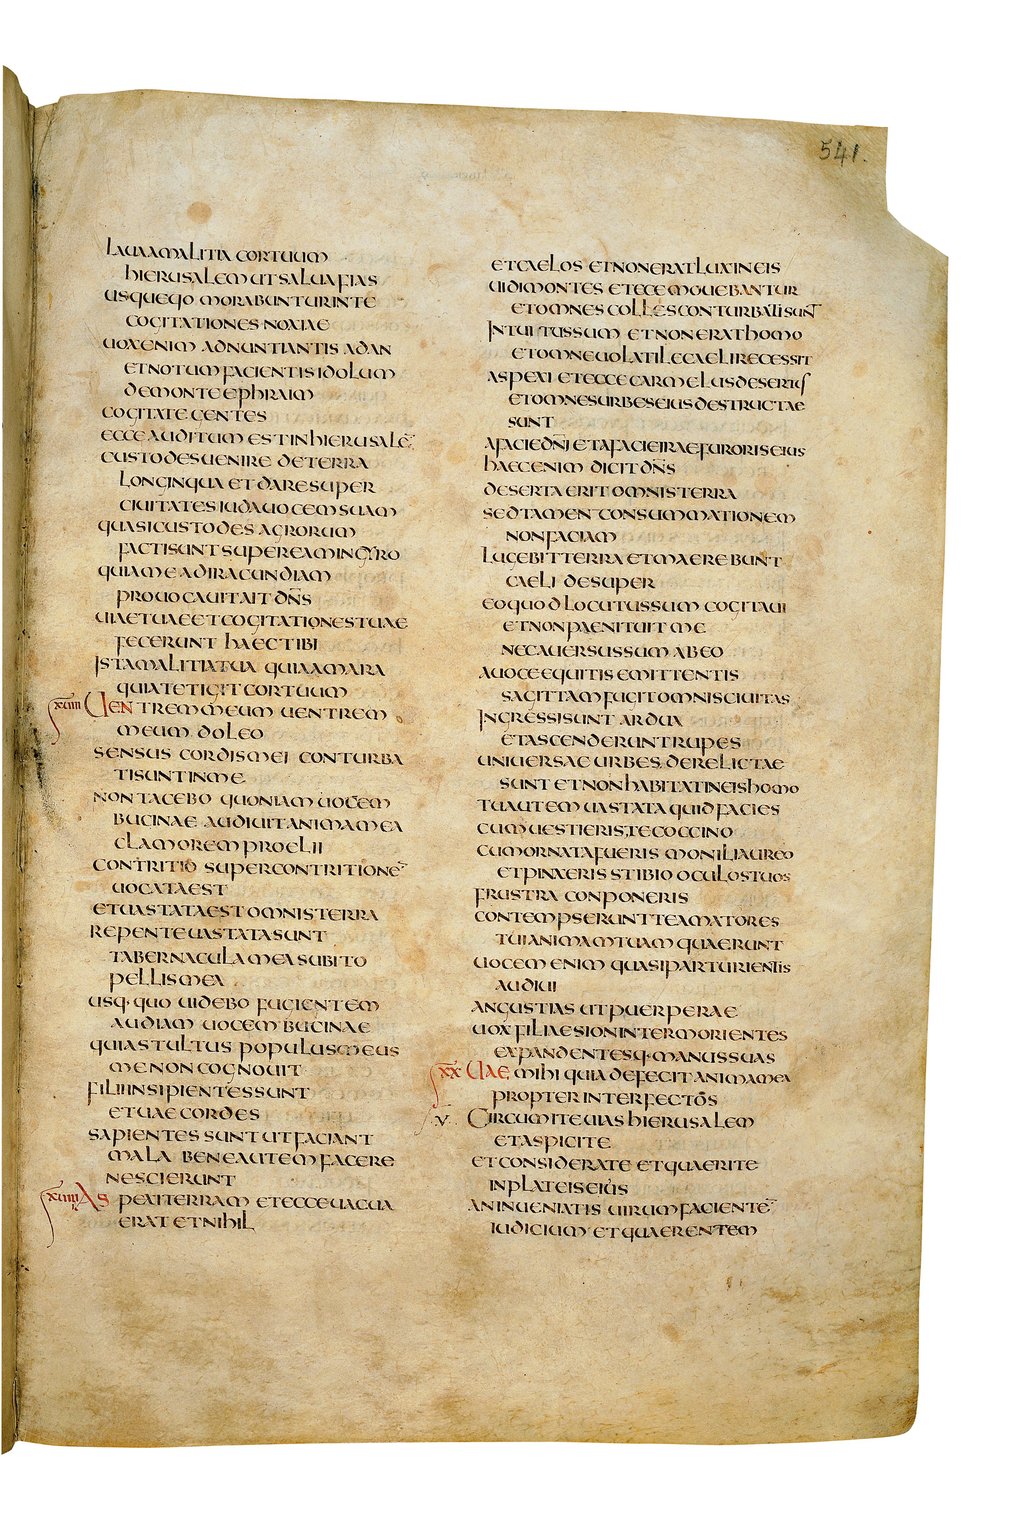 541.
LAUA A MALITIA COR TUUM
HIERUSALEM UT SALUA FIAS
USQUEQUO MORABUNTUR IN TE
COGITATIONES NOXIAE
UOX ENIM ADNUNTIANTIS A DAN
ET NOTUM FACIENTIS IDOLUM
DE MONTE EPHRAIM
COGITATE GENTES
ECCE AUDITUM EST IN HIERUSALĒ
CUSTODES UENIRE DE TERRA
LONGINQUA ET DARE SUPER
CIUITATES IUDA UOCEM SUAM
QUASI CUSTODES AGRORUM
FACTI SUNT SUPER EAM IN GYRO
QUIA ME AD IRACUNDIAM
PROUOCAUIT AIT DN̄S
UIAE TUAE ET COGITATIONES TUAE
FECERUNT HAEC TIBI
ISTA MALITIA TUA QUIA AMARA
QUIA TETIGIT COR TUUM
XUIII UENTREM MEUM UENTREM
MEUM DOLEO
SENSUS CORDIS MEI CONTURBA
TI SUNT IN ME
NON TACEBO QUONIAM UOCEM
BUCINAE AUDIUIT ANIMA MEA
CLAMOREM PROELII
CONTRITIO SUPER CONTRITIONĒ
UOCATA EST
ET UASTATA EST OMNIS TERRA
REPENTE UASTATA SUNT
TABERNACULA MEA SUBITO
PELLIS MEA
USQ· QUO UIDEBO FUCIENTEM
AUDIAM UOCEM BUCINAE
QUIA STULTUS POPULUS MEUS
ME NON COGNOUIT
FILII INSIPIENTES SUNT
ET UAECORDES
SAPIENTES SUNT UT FACIANT
MALA BENE AUTEM FACERE
NESCIERUNT
XUIIII ASPEXI TERRAM ET ECCE UACUA
ERAT ET NIHIL
ET CAELOS ET NON ERAT LUX IN EIS
UIDI MONTES ET ECCE MOUEBANTUR
ET OMNES COLLES CONTURBATI SUNT
INTUITUS SUM ET NON ERAT HOMO
ET OMNE UOLATILE CAELI RECESSIT
ASPEXI ET ECCE CARMELUS DESERTUS
ET OMNES URBES EIUS DESTRUCTAE
SUNT
A FACIE DN̄I ET A FACIE IRAE FURORIS EIUS
HAEC ENIM DICIT DN̄S
DESERTA ERIT OMNIS TERRA
SED TAMEN CONSUMMATIONEM
NON FACIAM
LUGEBIT TERRA ET MAEREBUNT
CAELI DESUPER
EO QUOD LOCUTUS SUM COGITAUI
ET NON PAENITUIT ME
NEC AUERSUS SUM AB EO
A UOCE EQUITIS EMITTENTIS
SAGITTAM FUGIT OMNIS CIUITAS
INGRESSI SUNT ARDUA
ET ASCENDERUNT RUPES
UNIUERSAE URBES DERELICTAE
SUNT ET NON HABITAT IN EIS HOMO
TU AUTEM UASTATA QUID FACIES
CUM UESTIERIS TE COCCINO
CUM ORNATA FUERIS MONILI AUREO
ET PINXERIS STIBIO OCULOS TUOS
FRUSTRA CONPONERIS
CONTEMPSERUNT TE AMATORES
TUI ANIMAM TUAM QUAERUNT
UOCEM ENIM QUASI PARTURIENTIS
AUDIUI
ANGUSTIAS UT PUERPERAE
UOX FILIAE SION INTERMORIENTES
EXPANDENTESQ· MANUS SUAS
XX UAE MIHI QUIA DEFECIT ANIMA MEA
PROPTER INTERFECTOS
V. CIRCUMITE UIAS HIERUSALEM
ET ASPICITE
ET CONSIDERATE ET QUAERITE
IN PLATEIS EIUS
AN INUENIATIS UIRUM FACIENTĒ
IUDICIUM ET QUAERENTEM